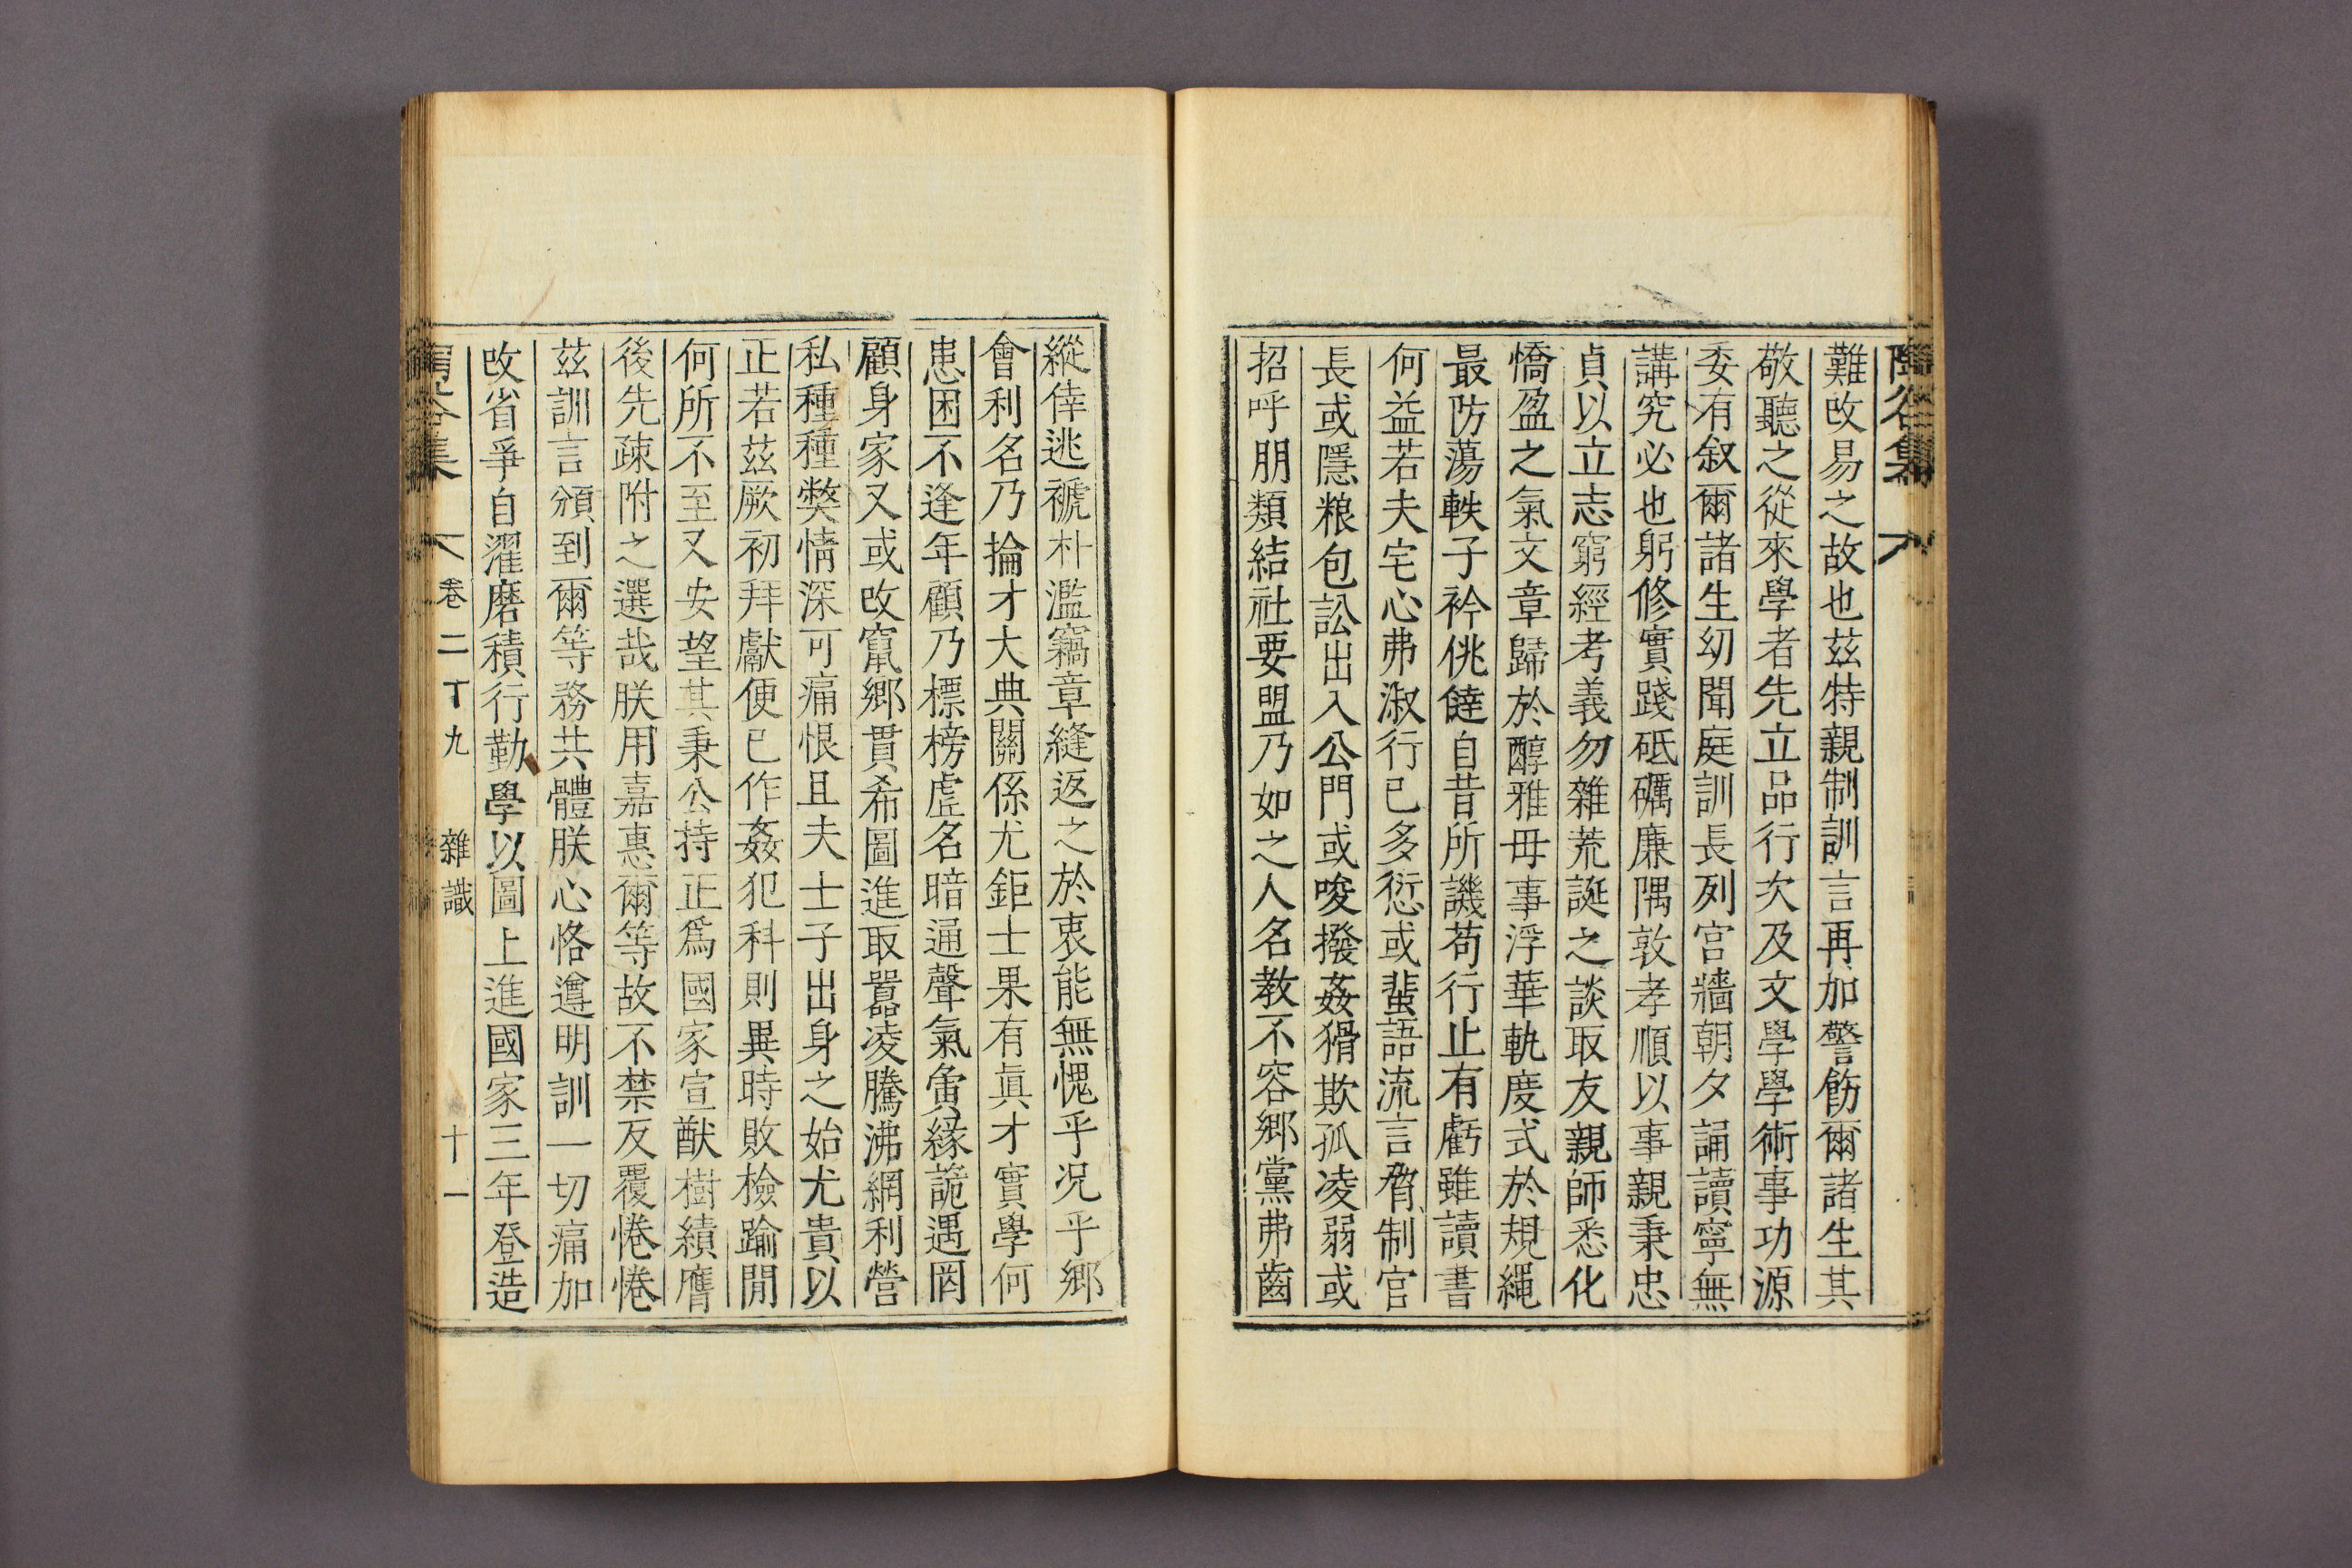 難改易之故也茲特親制訓言再加警飭爾諸生其
敬聽之從來學者先立品行次及文學學術事功源
委有叙爾諸生幼聞庭訓長列宫牆朝夕誦讀寧無
講究必也躬修實踐砥礪廉隅敦孝順以事親秉忠
貞以立志窮經考義勿雜荒誕之談取友親師悉化
憍盈之氣文章歸於醇雅毋事浮華軌度式於規繩
最防蕩軼子衿佻㒓自昔所譏苟行止有虧雖讀書
何益若夫宅心弗淑行已多愆或蜚語流言脅制官
長或隱粮包訟出入公門或唆撥姦猾欺孤凌弱或
招呼朋類結社要盟乃如之人名教不容鄉黨弗齒
縱倖逃褫朴濫竊章縫返之於衷能無愧乎况乎鄉
會利名乃掄才大典關係尤鉅士果有眞才實學何
患困不逢年顧乃標榜虛名暗通聲氣夤緣詭遇罔
顧身家又或改竄鄉貫希圖進取嚣凌騰沸網利營
私種種獘情深可痛恨且夫士子出身之始尤貴以
正若茲厥初拜獻便已作姦犯科則異時敗檢踰閒
何所不至又安望其秉公持正爲國家宣猷樹績膺
後先疎附之選哉朕用嘉惠爾等故不禁反覆惓惓
茲訓言頒到爾等務共體朕心恪遵明訓一切痛加
改省爭自濯磨積行勤學以圖上進國家三年登造
集 卷二十九 雜識 十一